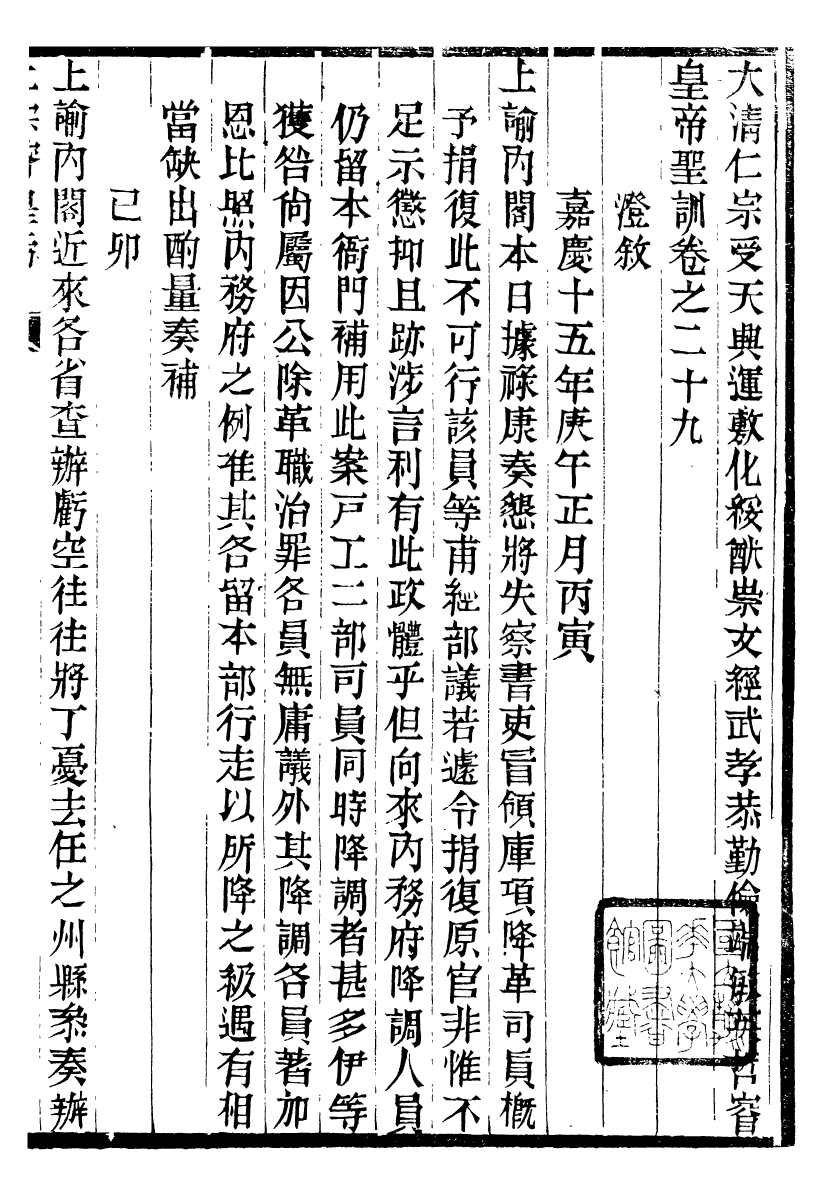 大淸仁宗受天興運敷化綏猷崇文經武孝恭勤儉端敏英哲睿
皇帝聖訓卷之二十九
澄敘
嘉慶十五年庚午正月丙寅
上諭內閣本日據祿康奏懇將失察書吏冒領庫項降革司員槪
予捐復此不可行該員等甫經部議若遽令捐復原官非惟不
足示懲抑且跡涉言利有此政體乎但向來內務府降調人員
仍留本衙門補用此案戸工二部司員同時降調者甚多伊等
獲咎尙屬因公除革職治罪各員無庸議外其降調各員著加
恩比照內務府之例准其各留本部行走以所降之級遇有相
當缺出酌量奏補
己卯
上諭內閣近來各省查辦虧空往往將丁憂去任之州縣叅奏辦
國立清華大學圖書館藏